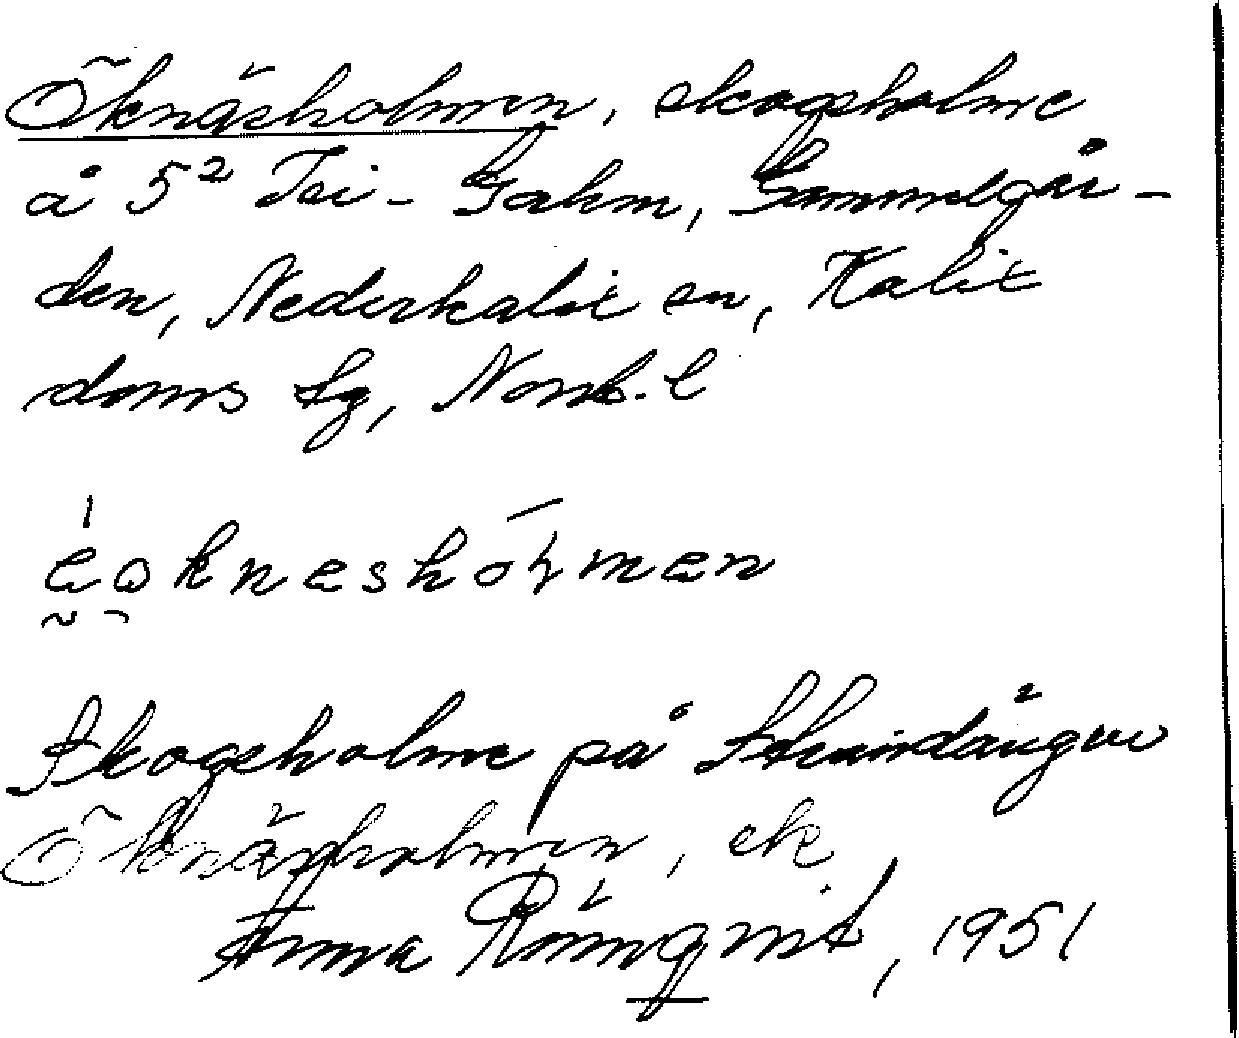 Öknäsholmen, skogsholme
å 5² Tei-Gahm, Gammelgår-
den, Nederkalix sn, Kalix
doms lg, Norrb. l
eoknesholmen
Skogsholme på Strandängen
Öknäsholmen, ek
Anna Rönnqvist, 1951